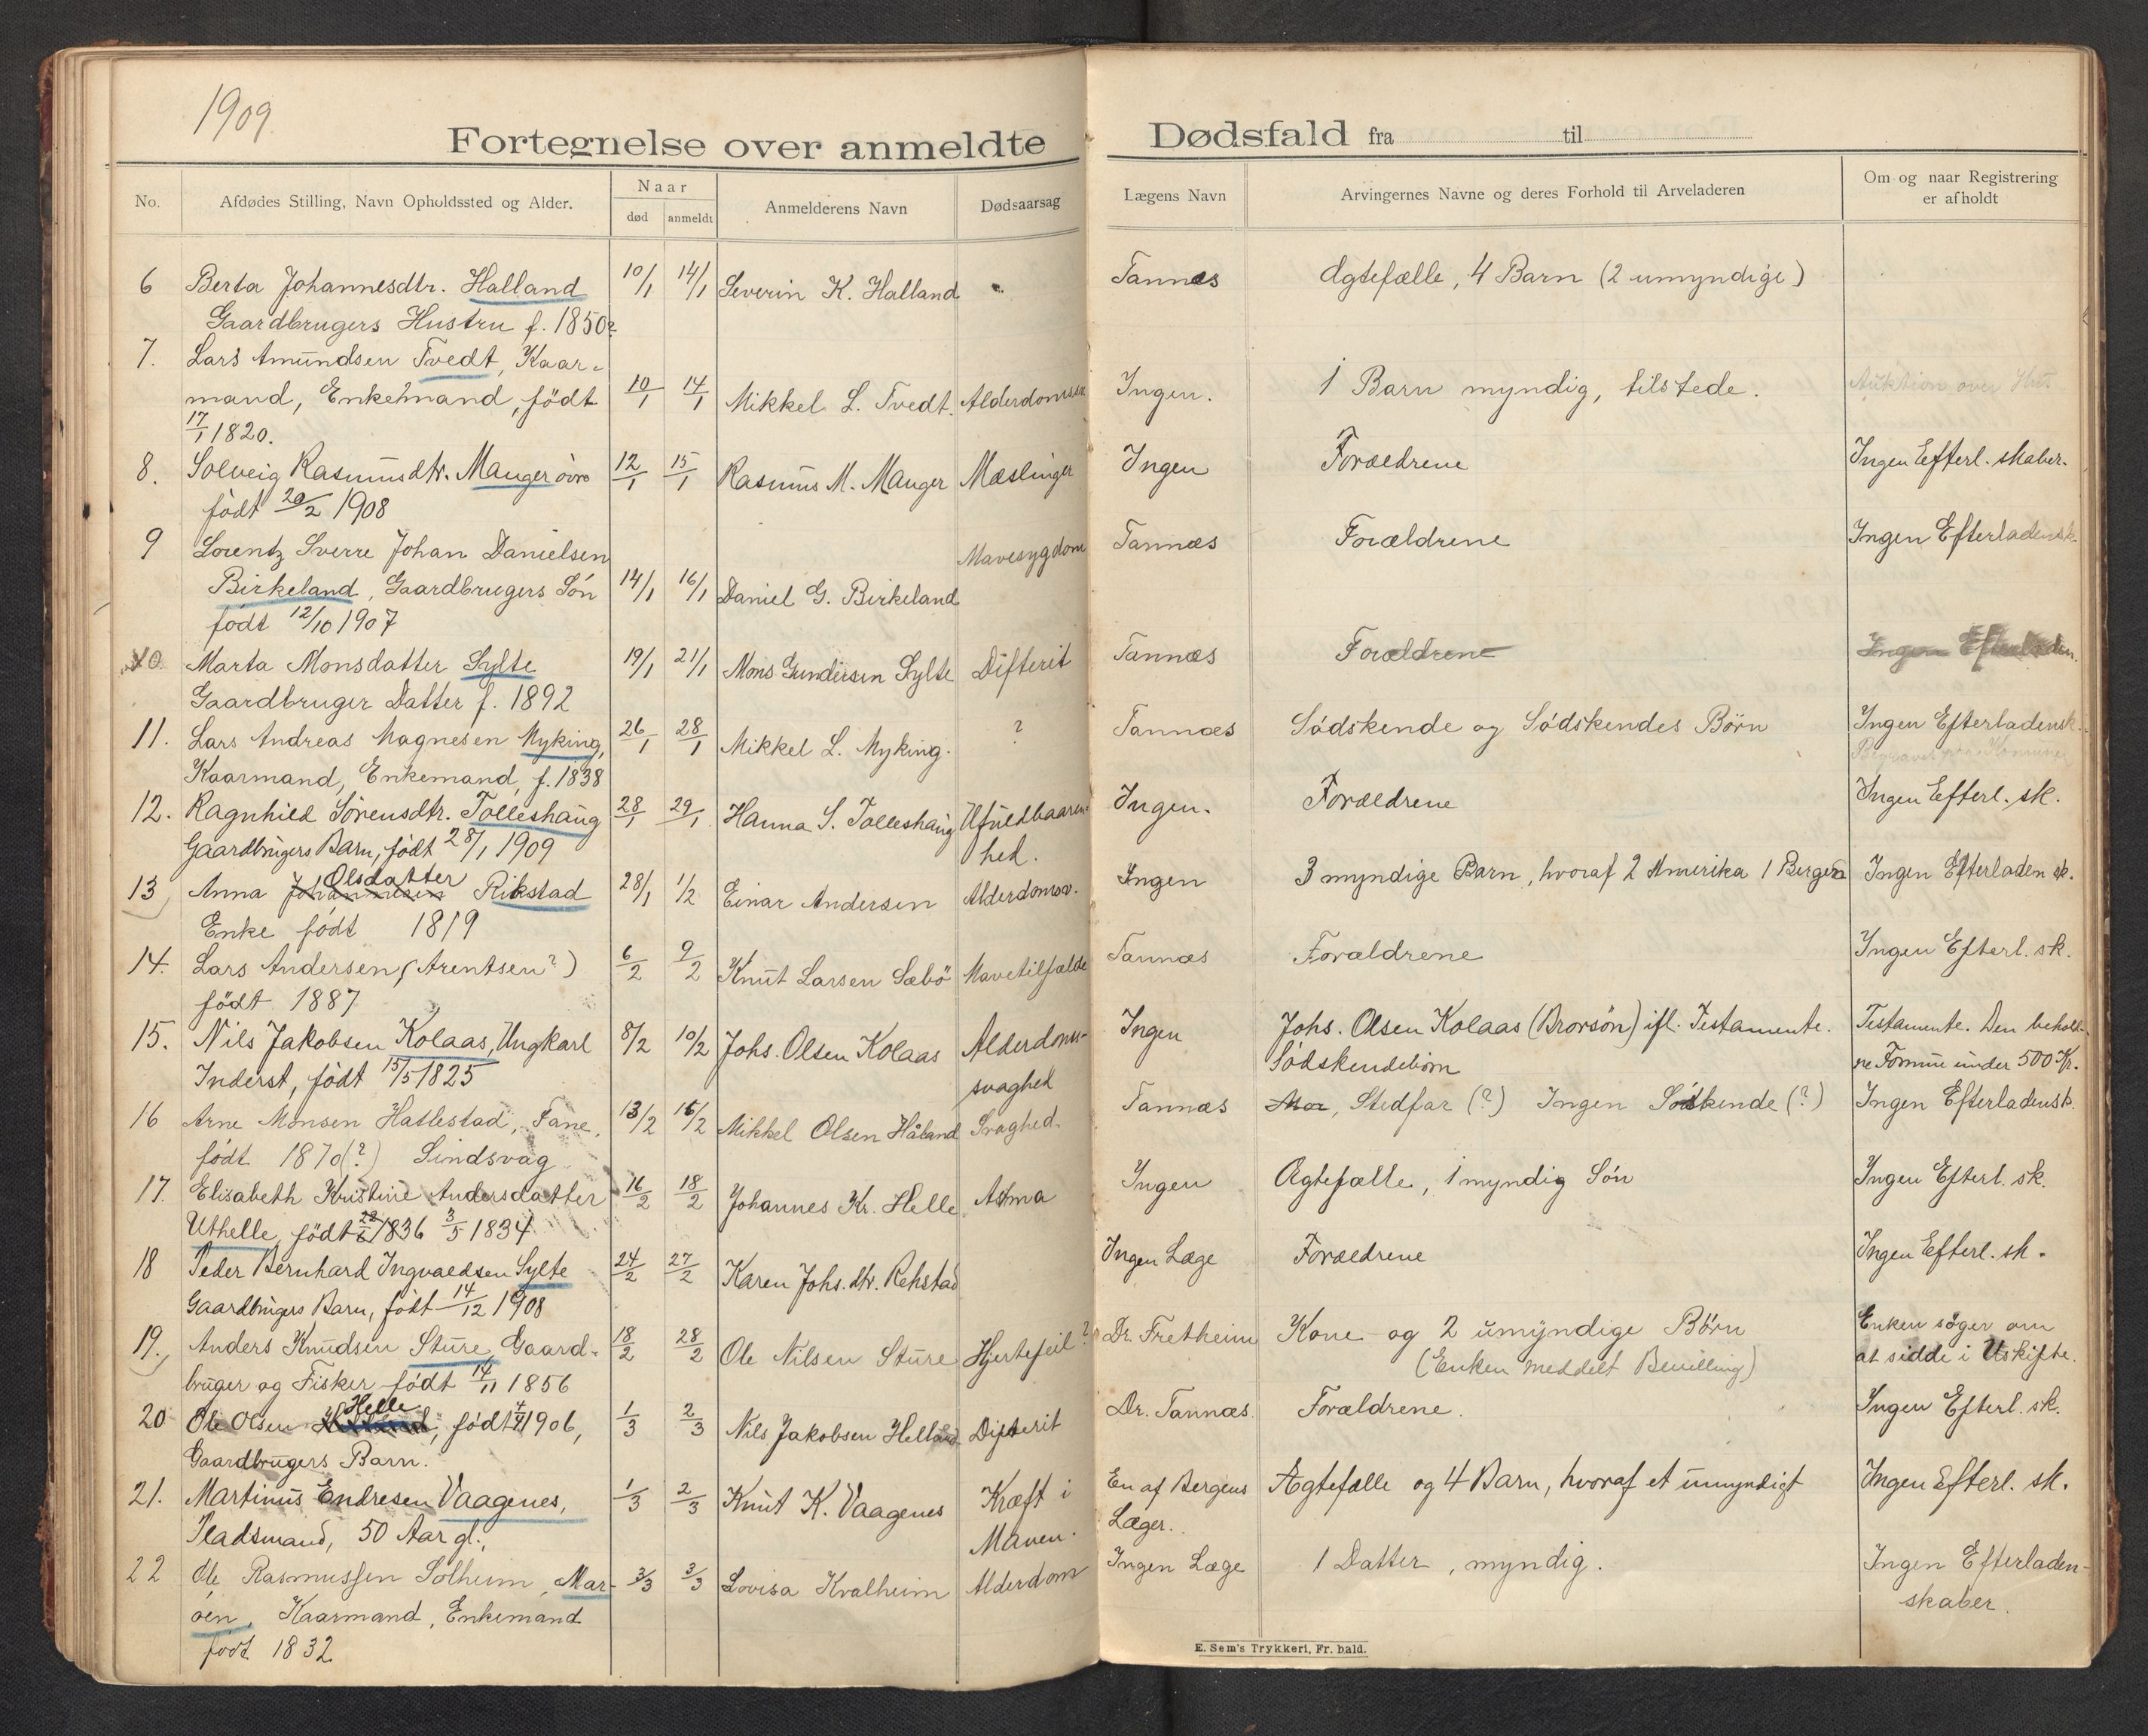 1909
Fortegnelse over anmeldte Dødsfald fra til
No.
Afdødes Stilling, Navn Opholdssted og Alder.
Naar
død
anmeldt
Anmelderens Navn
Dødsaarsag
Lægens Navn
Arvingernes Navne og deres Forhold til Arveladeren
Om og naar Registrering
er afholdt
6 Berta Johannesdtr. Halland 10/1 14/1 Severin K. Halland Tannæs Ægtefælle, 4 Barn (2 umyndige)
Gaardbrugers Hustru f. 1850?
7. Lars Amundsen Tvedt, Kaar-
mand, Enkemand, født 10/1 14/1 Mikkel L. Tvedt. Alderdomssv. Ingen. 1 Barn myndig, tilstede. Auktion over
17/1 1820.
8. Solveig Rasmusdtr. Manger övre 12/1 15/1 Rasmus M. Manger Mæslinger Ingen Forældrene Ingen Efterl. skaber.
født 20/2 1908
9 Lorentz Sverre Johan Danielsen Mavesygdom Tannæs Forældrene Ingen Efterladensk.
Birkeland, Gaardbrugers Søn 14/1 16/1 Daniel G. Birkeland
født 12/10 1907
10. Marta Monsdatter Sylte 19/1 21/1 Mons Gundersen Sylte Difterit Tannæs Forældrene Ingen Efterladen.
Gaardbruger Datter f. 1892
11. Lars Andreas Magnesen Myking, 26/1 28/1 Mikkel L. Myking. ? Tannæs Södskende og Södskendes Börn Ingen Efterladensk.
Kaarmand, Enkemand, f. 1838
12. Ragnhild Sörensdtr. Tolleshaug 28/1 29/1 Hanna S. Tolleshaug Ufuldbaaren- Ingen. Forældrene Ingen Efterl. sk.
Gaardbrugers Barn, født 28/1 1909 hed.
13 Anna Johannesen Olsdatter Rikstad 28/1 1/2 Einar Andersen Alderdomsv. Ingen 3 myndige Barn, hvoraf 2 Amerika 1 Bergen Ingen Efterladen sk.
Enke født 1819
14. Lars Andersen (Arentsen?) 6/2 9/2 Knut Larsen Sæbö Mavetilfælde Tannæs Forældrene Ingen Efterl. sk.
født 1887
15. Nils Jakobsen Kolaas, Ungkarl 8/2 10/2 Johs. Olsen Kolaas Alderdoms- Ingen Johs. Olsen Kolaas (Brorsön) ifl. Testamente. Testamente. Den behold-
Inderst, født 15/5 1825 svaghed Södskendebörn ne Formue under 500 Kr.
16 Arne Monsen Hatlestad, Fane, 13/2 15/2 Mikkel Olsen Håland Svaghed. Tannæs Mor, Stedfar (?) Ingen Södskende (?) Ingen Efterladensk.
født 1870(?) Sindsvag
17. Elisabeth Kristine Andersdatter 16/2 18/2 Johannes Kr. Helle Astma Ingen Ægtefælle, 1 myndig Sön Ingen Efterl. sk.
Uthelle, født 1836 3/5 1834
18 Peder Bernhard Ingvaldsen Sylte 24/2 27/2 Karen Johs. dtr. Rehstad Ingen Læge Forældrene Ingen Efterl. sk.
Gaardbrugers Barn, født 14/12 1908
19. Anders Knudsen Sture, Gaard- 18/2 28/2 Ole Nilsen Sture Hjertefeil? Dr. Fretheim Kone og 2 umyndige Börn Enken söger om
bruger og Fisker født 14/11 1856 (Enken meddelt Bevilling) at sidde i Uskifte.
20 Ole Olsen Helle, født 1906, 1/3 2/3 Nils Jakobsen Helland Difterit Dr. Tannæs. Forældrene. Ingen Efterl. sk.
Gaardbrugers Barn.
21. Martinus Endresen Vaagenes, 1/3 2/3 Knut K. Vaagenes Kræft i En af Bergens Ægtefælle og 4 Barn, hvoraf et umyndigt Ingen Efterl. sk.
Pladsmand, 50 Aar gl. Maven. Læger.
22 Ole Rasmussen Solheim, Mar- 3/3 3/3 Lovisa Kvalheim Alderdom Ingen Læge 1 Datter, myndig. Ingen Efterladen-
öen, Kaarmand, Enkemand skaber.
født 1832
E. Sem's Trykkeri, Fr.hald.